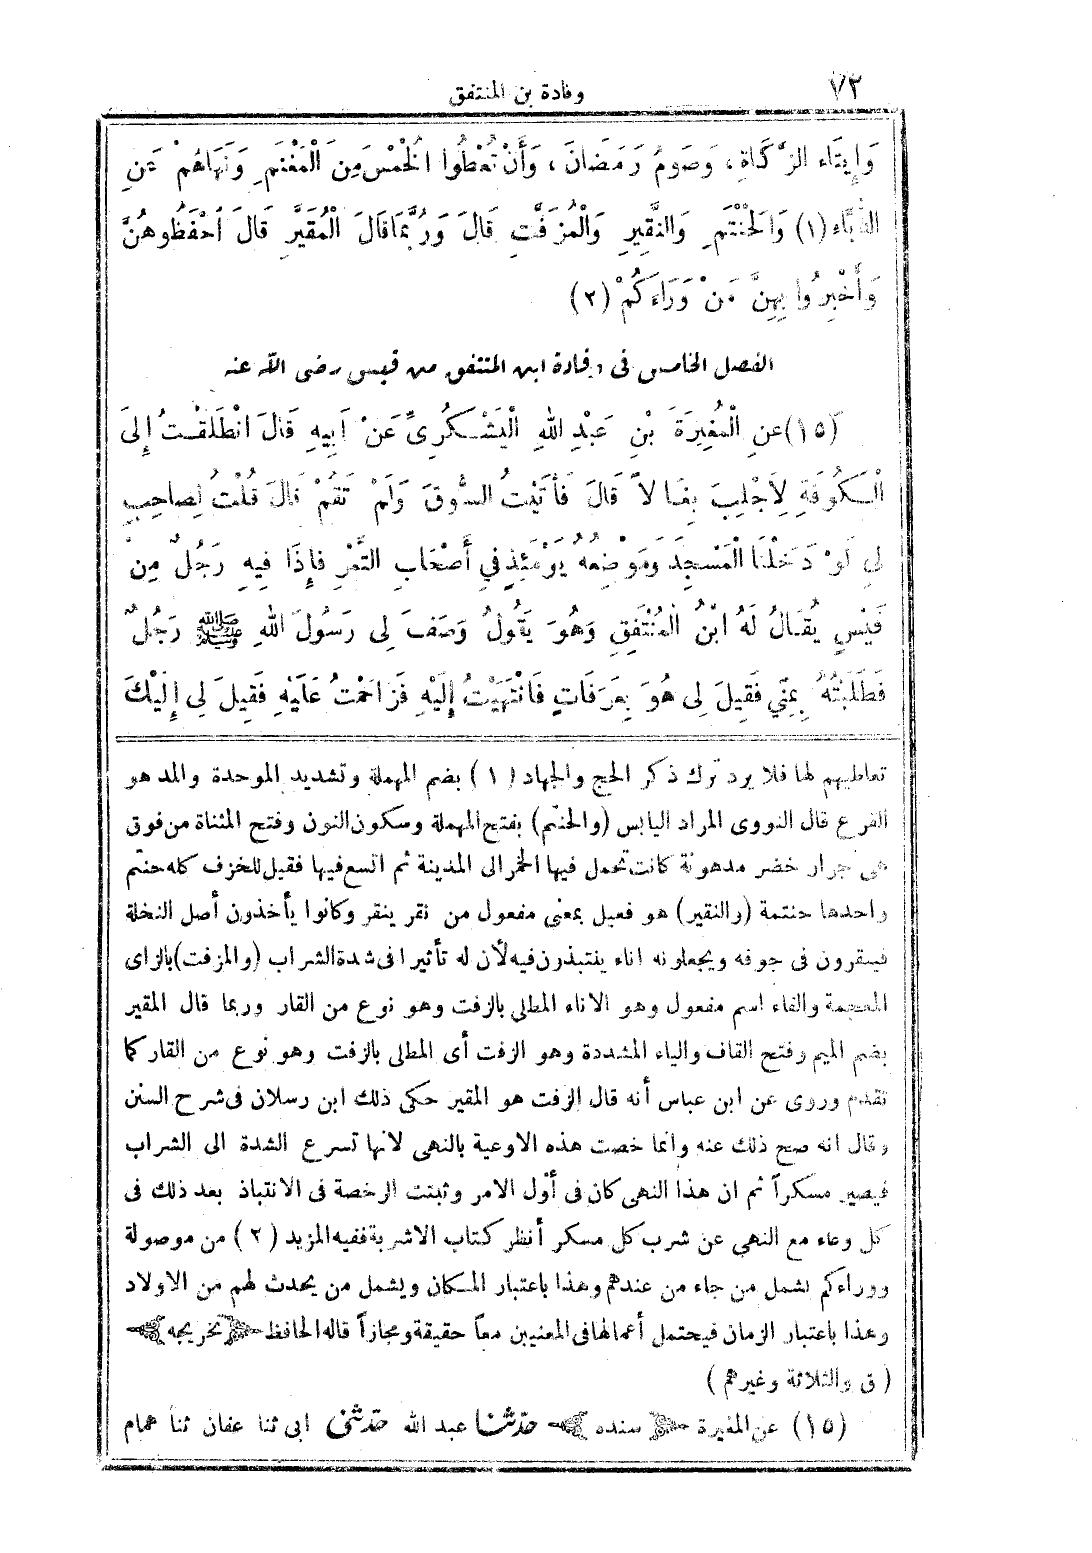 ٧٢
وفادة بن المنتفق
وَإِيتَاء الزَّكَاةِ، وَصَومُ رَمَضَانَ، وَأَنْ تُعْطُوا الْخُمْسَ مِنَ الْمَغْنَمِ وَنَهَاهُمْ عَنِ
الدُّبَّاء (١) وَالحَنْتَمِ وَالنَّقِيرِ وَالْمُزَفَّتِ قَالَ وَرُبَّمَا قَالَ الْمُقَيَّرِ قَالَ احْفَظُوهُنَّ
وَأَخْبِرُوا بِهِنَّ مَنْ وَرَاءَكُمْ (٢)
الفصل الخامس فى وفادة ابن المنتفق من قيس رضى الله عنه
(١٥) عنِ الْمُغِيرَةَ بْنِ عَبْدِ اللهِ الْيَشْكُرِىِّ عَنْ أَبِيهِ قَالَ انْطَلَقْتُ إِلَىَ
الْكُوفَةِ لِأَجْلِبَ بِغَالاً قَالَ فَأَتَيْتُ السُّوقَ وَلَمْ تَقُمْ قَالَ قُلْتُ لِصَاحِبٍ
لِى لَوْ دَخَلْنَا الْمَسْجِدَ وَمَوْضِعُهُ يَوْمَئِذٍ فِي أَصْحَابِ التَّمْرِ فَإِذَا فِيهِ رَجُلٌ مِنْ
قَيْسٍ يُقَالُ لَهُ ابْنُ الْمُنْتَفِقِ وَهُوَ يَقُولُ وَصَفَ لِى رَسُولَ اللهِ ﷺ رَجُلٌ
فَطَلَبْتُهُ بِمِنًي فَقِيلَ لِى هُوَ بِعَرَفَاتٍ فَانْتَهَيْتُ إِلَيْهِ فَزَاحَمْتُ عَلَيْهِ فَقِيلَ لِى إِلَيْكَ
تعاطيهم لها فلا يرد ترك ذكر الحج والجهاد (١) بضم المهملة وتشديد الموحدة والمد هو
القرع قال النووى المراد اليابس (والحنتم) بفتح المهملة وسكون النون وفتح المثناة من فوق
هى جرار خضر مدهونة كانت تحمل فيها الخمر الى المدينة ثم اتسع فيها فقيل للخزف كله حنتم
واحدها حنتمة (والنقير) هو فعيل بمعنى مفعول من نقر ينقر وكانوا يأخذون أصل النخلة
فينقرون فى جوفه ويجعلونه اناء ينتبذون فيه لأن له تأثيرا فى شدة الشراب (والمزفت) بالزاى
المعجمة والفاء اسم مفعول وهو الاناء المطلي بالزفت وهو نوع من القار وربما قال المقير
بضم الميم وفتح القاف والياء المشددة وهو الزفت أى المطلى بالزفت وهو نوع من القار كما
تقدم وروى عن ابن عباس أنه قال الزفت هو المقير حكى ذلك ابن رسلان فى شرح السنن
وقال انه صح ذلك عنه وانما خصت هذه الاوعية بالنهى لانها تسرع الشدة الى الشراب
فيصير مسكراً ثم ان هذا النهى كان فى أول الامر وثبتت الرخصة فى الانتباذ بعد ذلك فى
كل وعاء مع النهى عن شرب كل مسكر أنظر كتاب الاشربة ففيه المزيد (٢) من موصولة
ووراءكم يشمل من جاء من عندهم وهذا باعتبار المكان ويشمل من يحدث لهم من الاولاد
وهذا باعتبار الزمان فيحتمل أعمالها فى المعنيين معاً حقيقة ومجازاً قاله الحافظ ﴿تخريجه﴾
(ق والثلاثة وغيرهم)
(١٥) عن المغيرة ﴿سنده﴾ حدّثنا عبد الله حدّثنى ابى ثنا عفان ثنا همام